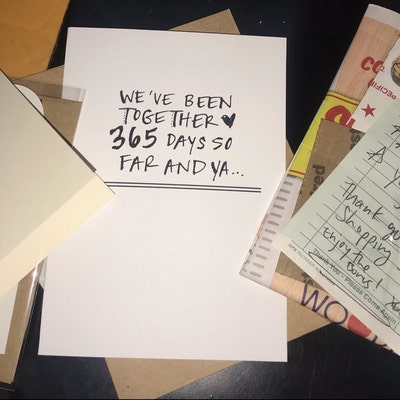 WE'VE BEEN
TOGETHER ♥
365 DAYS SO
FAR AND YA...
CO
A
Thank you
Shopping
Enjoy the
Thank You - Please Come Again
WO